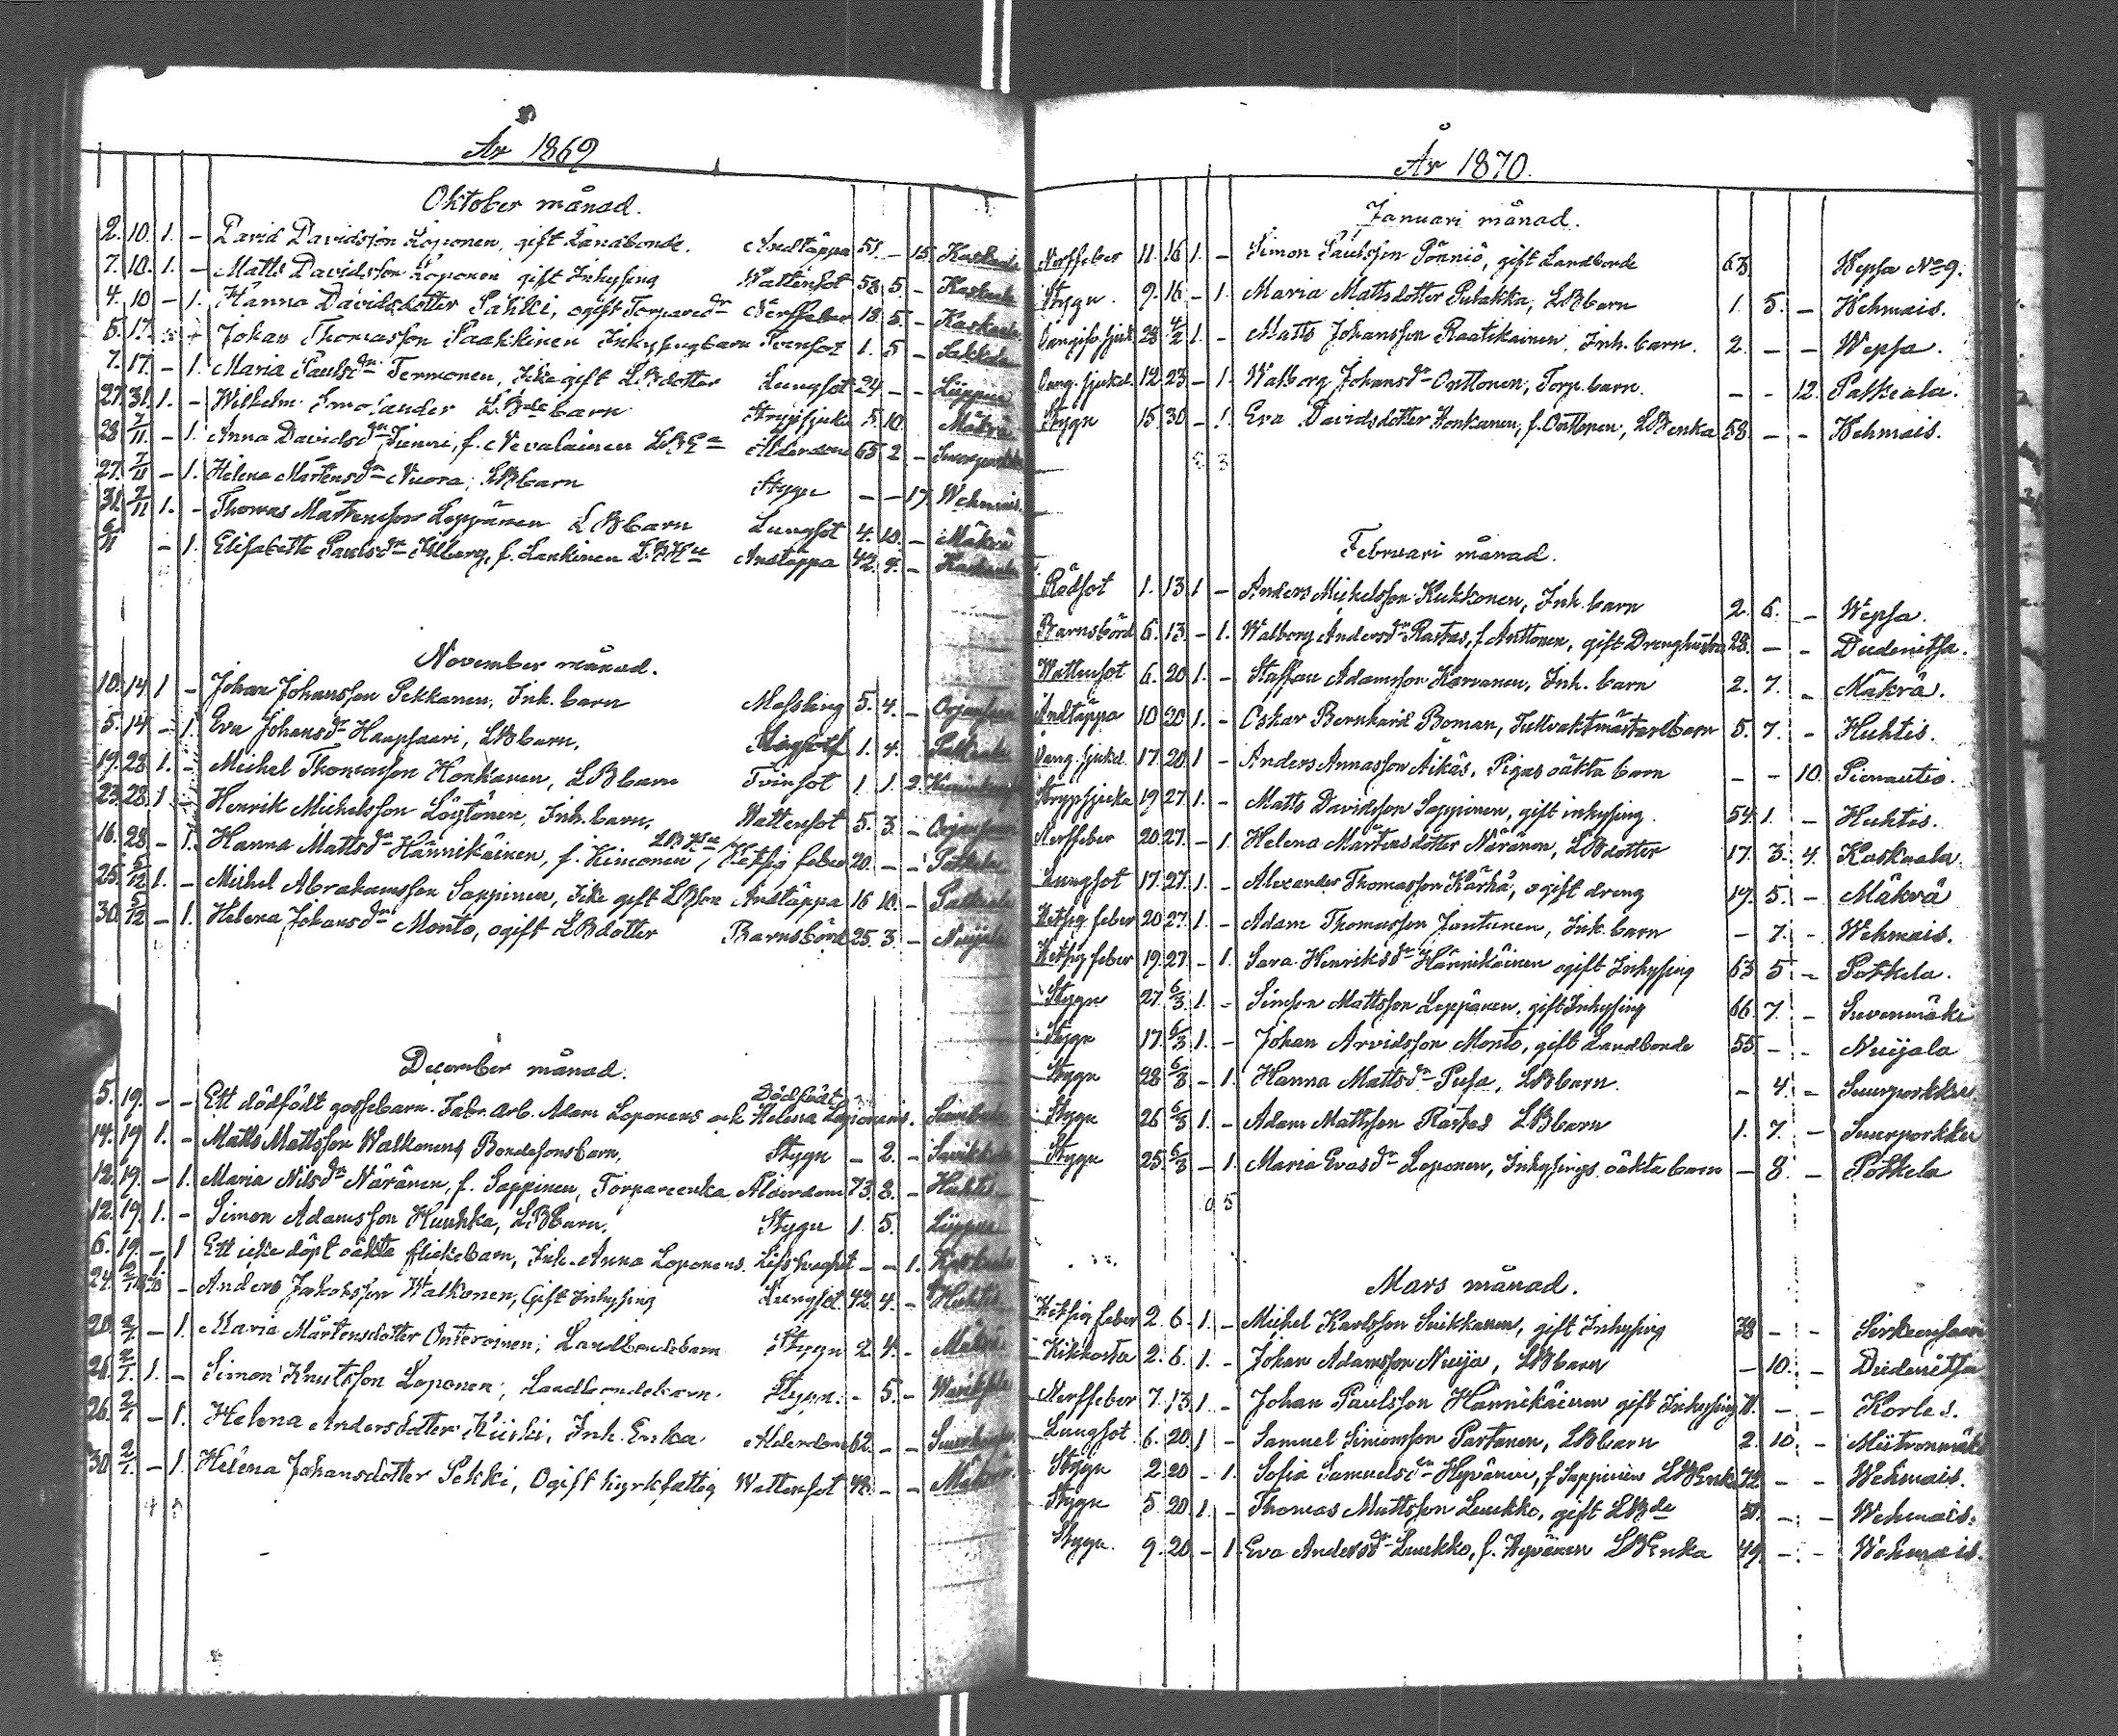 År 1869
Oktober månad.
2. 10. 1. – David Davidsson Loponen, gift Landbonde. Andtäppa 51. – 15. Kaskaala
7. 10. 1. – Matts Davidsson Loponen gift Inhysing Wattensot 58 5. – Kaskaala
4. 10 – 1. Hanna Davidsdotter Sahki, ogift Torparedr Nerffeber 18. 5. – Kaskaala
5. 17. Johan Thomasson Paakkinen Inhysingbarn Tvinsot 1. 5 –
7. 17. – 1. Maria Paulsdr Termonen, Icke gift LBdotter Lungsot 24 – – Liippua
27. 31. 1. – Wilhelm Smolander LBde barn Strypsjuka 5. 10. Mäkrä
28 7/11 – 1. Anna Davidsdr f. Nevalainen LBEa Ålderdom 65 2 –
27. 7/11 – 1. Helena Mårtensdr Nuora, LBbarn Stygn – – 17. Wehmais.
31. 7/11 1. – Thomas Mårtensson Leppänen LBbarn Lungsot 4. 10. – Mäkrä
6/11 – 1. Elisabetta Paulsdr f. Lankinen LBHu Andtäppa 42. 9. – Kaskaala
November månad.
10. 14. 1 – Johan Johansson Pekkanen, Inh. barn Messling 5. 4. –
5. 14 – 1. Eva Johansdr Haapsaari, LBbarn, 1. 4.
19. 28 1. – Michel Thomasson Honkanen, LBbarn Tvinsot 1 1. 2.
23. 28. 1 – Henrik Michelsson Löytönen, Inh. barn, Wattensot 5. 3. –
16. 28 – 1. Hanna Mattsdr Hännikäinen, f. Kimonen LBHu Hetsig feber 20. – – Potkela
25. 5/12 1. – Michel Abrahamsson Sappinen, Icke gift LBson Andtäppa 16 10. –
30. 5/12 – 1. Helena Johansdr Monto, ogift LBdotter Barnsbörd 25. 3. – Nuijala
December månad.
5. 19. – – Ett dödfödt gossebarn. Fabr. arb. Adam Loponens och Helena Loponens. Dödfödt
14. 19 1. – Matts Mattsson Walkonens Bondesonsbarn, Stygn – 2. –
12. 19. – 1. Maria Nilsdr Näränen, f. Sappinen, Torpareenka Ålderdom 73. 8. – Huhtis
12. 19 1. – Simon Adamsson Huuhka, LBbarn, Stygn 1. 5. Liippua
6. 19. – 1 Ett icke döpt oäkta flickebarn, Inh. Anna Loponens. – – 1. Kaskaala
24. 2/1 – Anders Jakobsson Walkonen, Gift Inhysing Lungsot 42. 4. – Huhtis
20. 2/1 – 1. Maria Mårtensdotter Onteroinen, Landbondebarn Stygn 2. 4. – Mäkrä
26. 2/1 1. – Simon Knutsson Loponen, Landbondebarn. Stygn. – 5. –
26. 2/1 – 1. Helena Andersdotter Kiiski, Inh. Enka Ålderdom 62. – –
30. 2/1 – 1. Helena Johansdotter Pekki, Ogift kyrkfattig Wattensot 48. – – Mäkrä
År 1870.
Januari månad.
Nerffeber 11. 16 1. – Simon Paulsson Pönniö, gift Landbonde 63 Wepsa No 9.
Stygn. 9. 16 – 1. Maria Mattsdotter Pulakka, LBbarn 1. 5. – Wehmais.
28 4/2 1. – Matts Johansson Raatikainen, Inh. barn. 2. – – Wepsa.
12. 23 – 1. Walborg Johansdr Onttonen, Torp. barn. – – 12. Patkeala.
Stygn 15 30 – 1. Eva Davidsdotter Honkanen, f. Onttonen, LBenka 58. – – Wehmais.
Februari månad.
Rödsot 1. 13. 1 – Anders Michelsson Kukkonen, Inh. barn 2. 6. – Wepsa.
Barnsbörd 6. 13. – 1. Walborg Andersdr Rastas, f. Anttonen, gift Drenghustru 28. – – Dudenitsa.
Wattensot 6. 20. 1. – Staffan Adamsson Karvanen, Inh. barn 2. 7. – Mäkrä.
Andtäppa 10 20 1. – Oskar Bernhard Boman, Tullvaktmästarebarn 5. 7. – Huhtis.
17. 20. 1 – Anders Annasson Äikäs, Pigas oäkta barn – – 10. Pienautio.
Strypsjuka 19 27. 1. – Matts Davidsson Sappinen, gift inhysing. 54. 1. – Huhtis.
Nerffeber 20 27. – 1. Helena Mårtensdotter Näränen, LBdotter 17. 3. 4. Kaskaala.
Lungsot 17. 27. 1. – Alexander Thomasson Kärhä, ogift dreng 19. 5. – Mäkrä
Hetsig feber 20 27. 1. – Adam Thomasson Jantunen, Inh. barn – 7. – Wehmais.
Hetsig feber 19. 27. – 1. Sara Henriksdr Hännikäinen ogift Inhysing 63 5 – Potkela.
Stygn 27. 6/3 1. – Simson Mattsson Leppänen, gift Inhysing 66. 7. – Suvenmäki
Stygn 17. 6/3 1. – Johan Arvidsson Monto, gift Landbonde 55. – – Nuijala
Stygn 28 6/3 – 1. Hanna Mattsdr Pusa, LBbarn – 4. – Suurporkku
Stygn 26 6/3 1. – Adam Mattsson Rastas LBbarn 1. 7. – Suurporkku
Stygn 25. 6/3 – 1. Maria Evasdr Loponen, Inhysings oäkta barn – 8. – Potkela
Mars månad.
Hetsig feber 2. 6. 1. – Michel Karlsson Suikkanen, gift Inhysing 38 – –
Kikhosta 2. 6. 1. – Johan Adamsson Nuija, LBbarn – 10. – Dudenitsa
Nerffeber 7. 13. 1 – Johan Paulsson Hännikäinen gift Inhysing 71. – – Korles.
Lungsot 6. 20. 1 – Samuel Simonsson Partanen, LBbarn 2. 10. –
Stygn 2 20 – 1. Sofia Samuelsdr Hyvönen, f. Sappinen LBEnka 72 – – Wehmais.
Stygn 5. 20. 1. – Thomas Mattsson Luukko, gift LBde 51. – – Wehmais.
Stygn. 9. 20. – 1. Eva Andersdr Luukko, f. Hyvönen LBEnka 49. – – Wehmais.